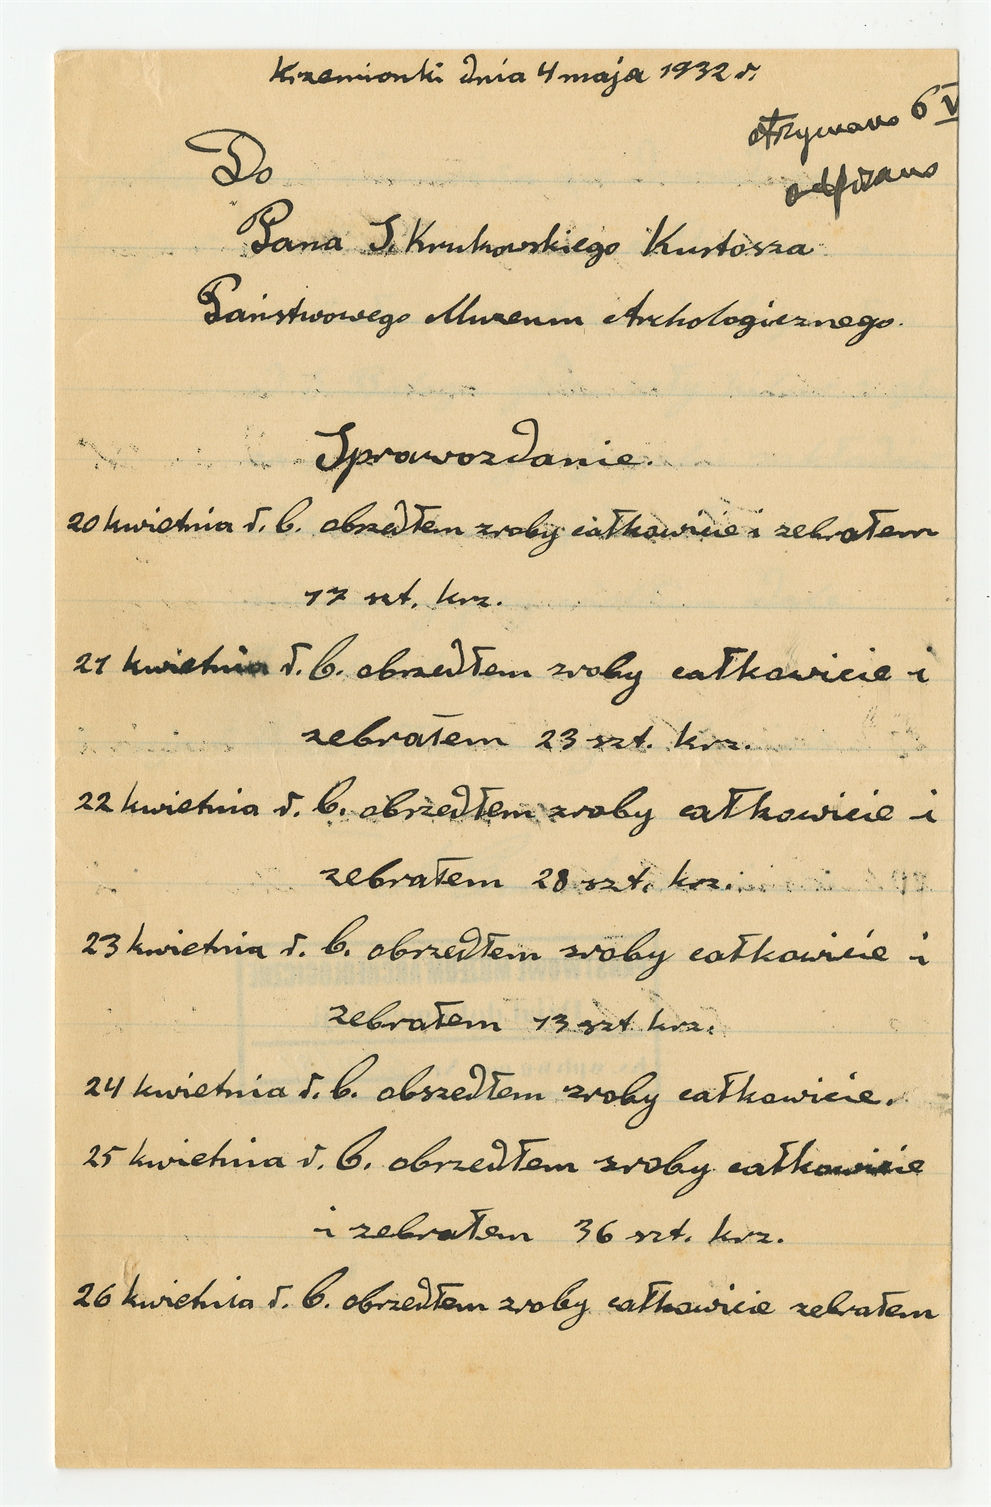 Krzemionki dnia 4 maja 1932 r.
otrzymano 6 V
odpisano
Do
Pana S. Krukowskiego Kustosza
Państwowego Muzeum Archologicznego.
Sprawozdanie.
20 kwietnia r. b. obszedłem zroby całkowicie i zebrałem
17 szt. krz.
21 kwietnia r. b. obszedłem zroby całkowicie i
zebrałem 23 szt. krz.
22 kwietnia r. b. obszedłem zroby całkowicie i
zebrałem 28 szt. krz.
23 kwietnia r. b. obszedłem zroby całkowicie i
zebrałem 13 szt. krz.
24 kwietnia r. b. obszedłem zroby całkowicie.
25 kwietnia r. b. obszedłem zroby całkowicie
i zebrałem 36 szt. krz.
26 kwietnia r. b. obszedłem zroby całkowicie zebrałem